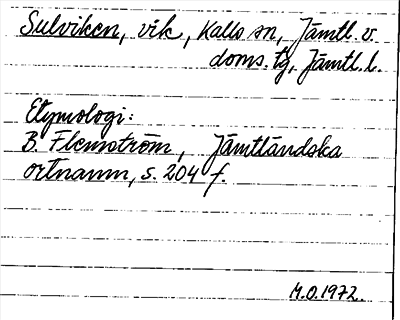 Sulviken, vik, Kalls sn, Jämtl. v.
doms. tg, Jämtl. l.
Etymologi:
B. Flemström, Jämtländska
ortnamn, s. 204 f.
M.O.1972.